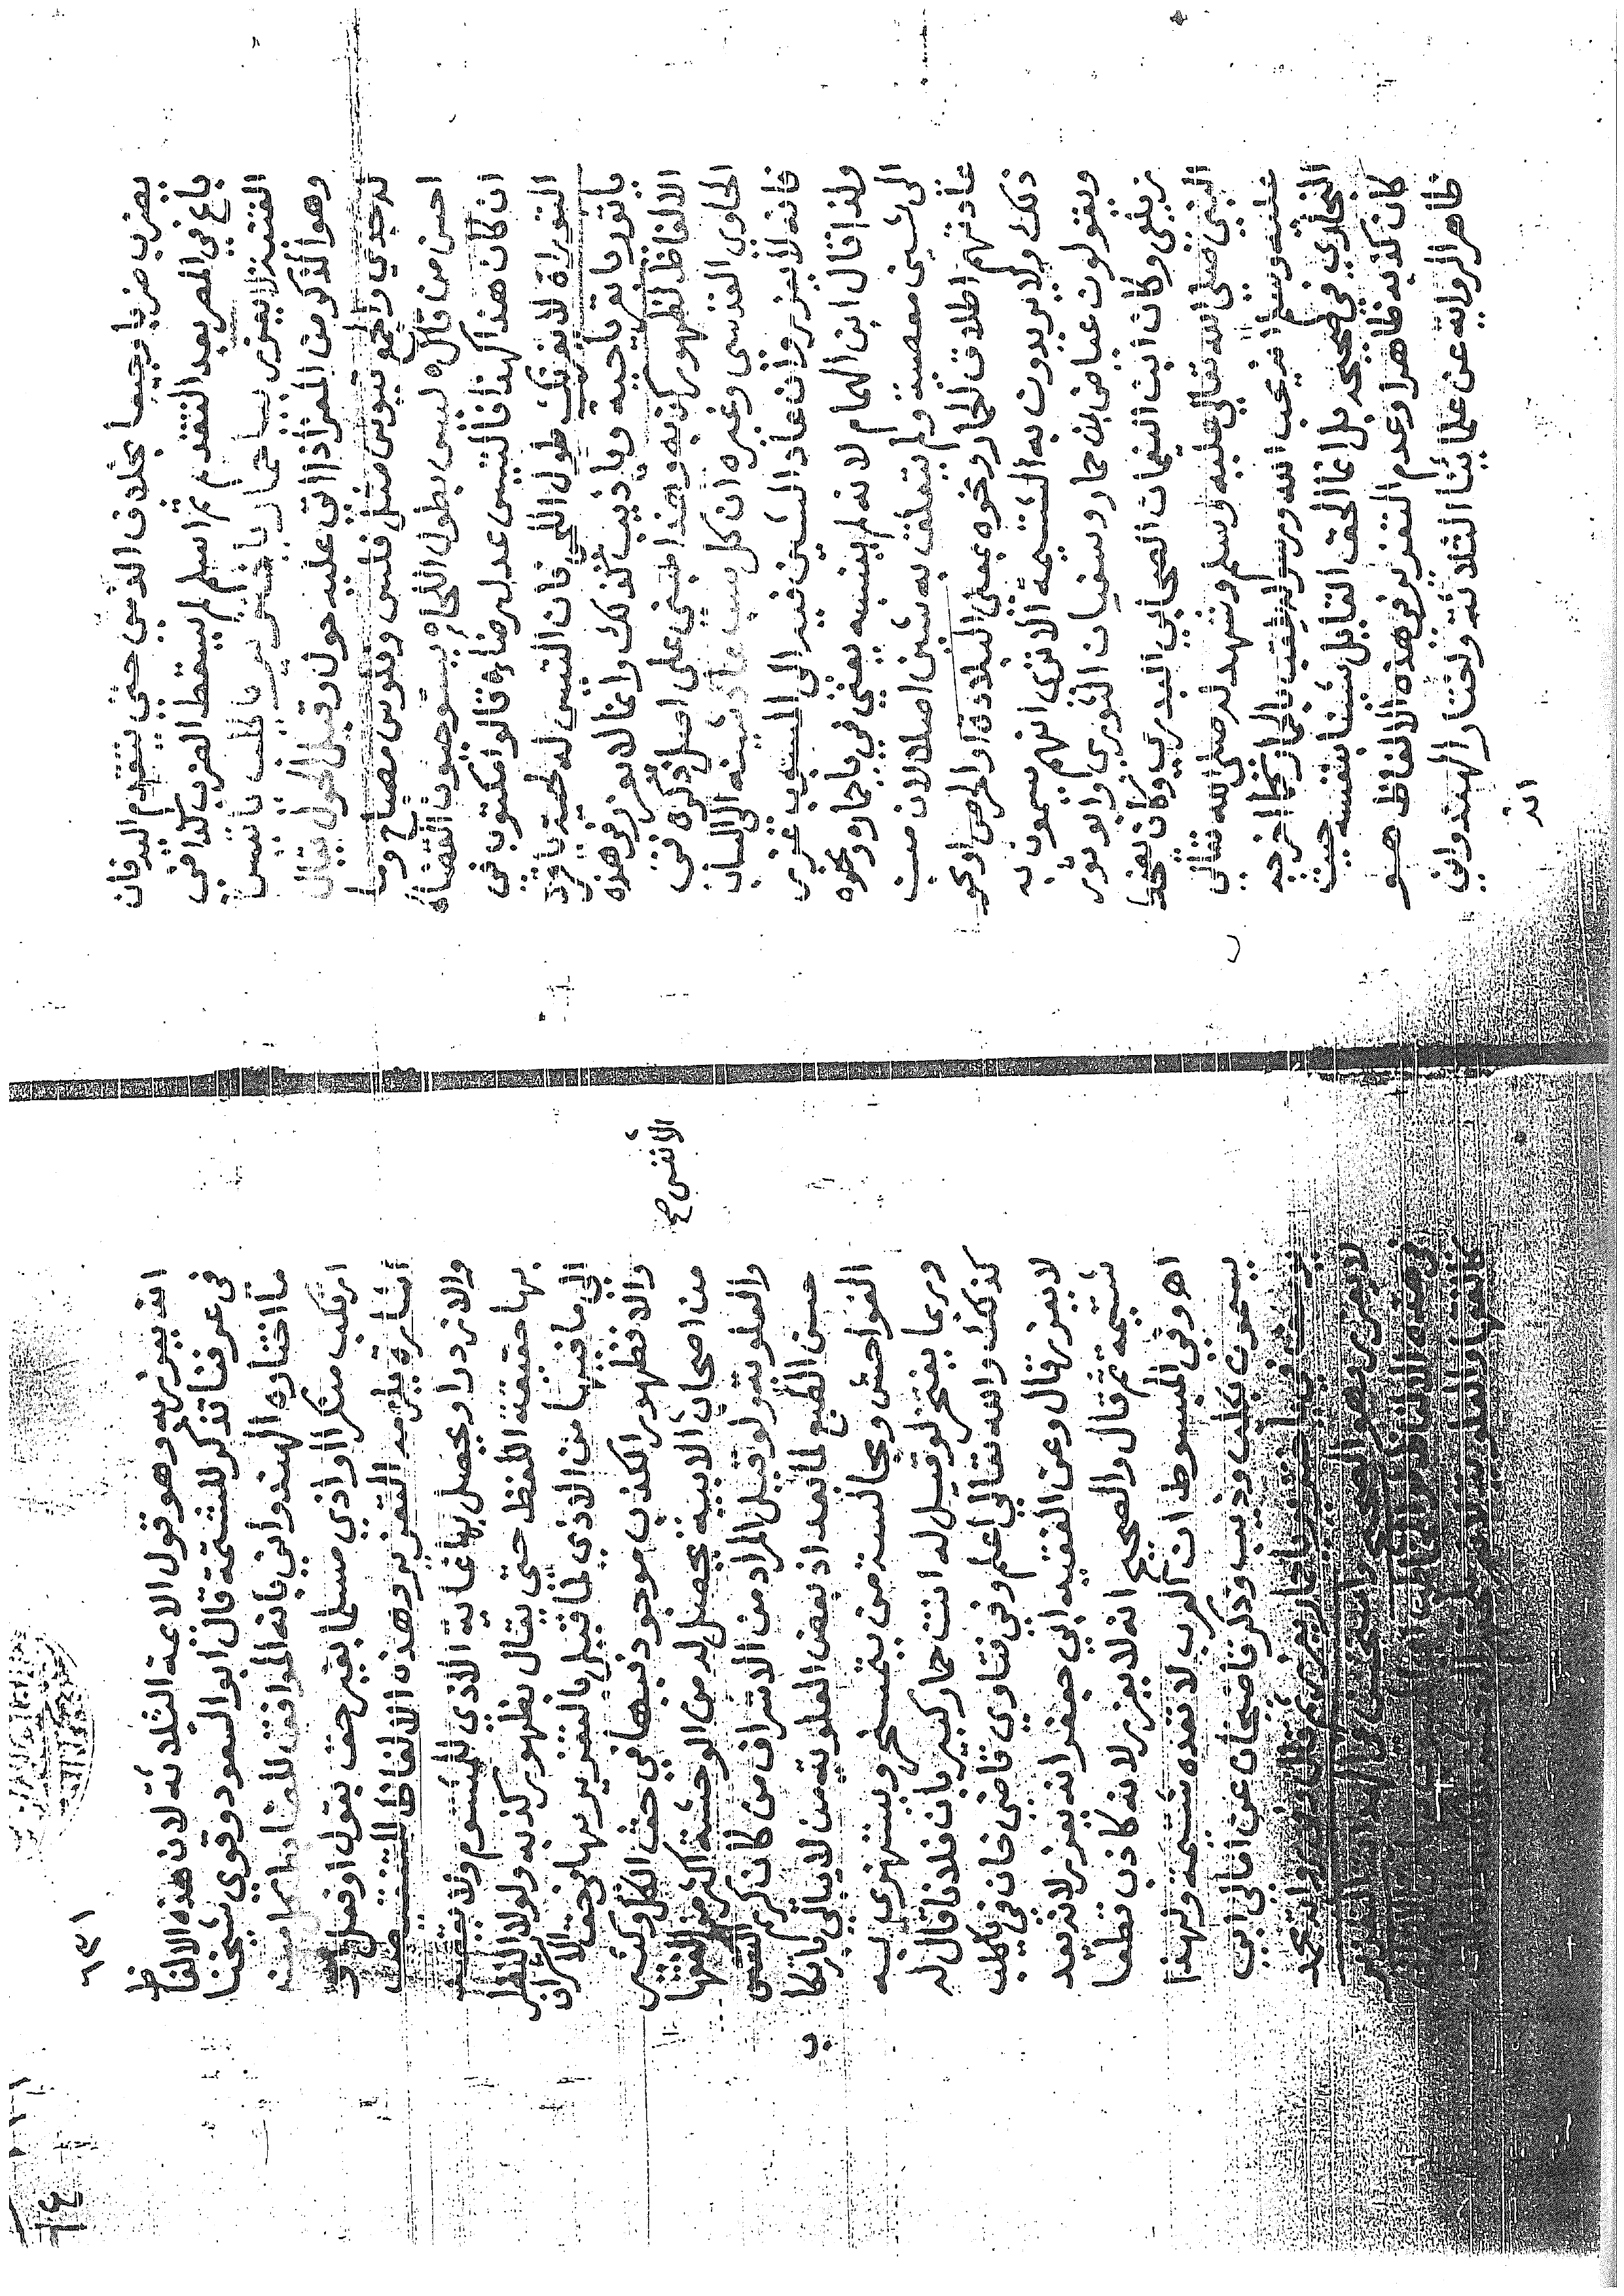 يضرب ضربا وجيعا بخلاف الذمي حتى يتقدم اليه فان
باع في المصر بعد التقدم ثم اسلم لم يسقط الضرب كذا في
القنية لا يعزر بيا حمار يا خنزير يا كلب يا تيس
وهو الذكر من المعز اذا اتى عليه حول وقبل الحول يقال
له جدي والجمع تيوس مثل فلس وفلوس مصباح وما
احسن من قال ليس بطول اللحاء يستوجبون القضاة
ان كان هذا كهذا فالتيس عدل رضاء قالوا مكتوب في
التوراة لا يغرنك طول اللحى فان التيس له لحية يا قرد
يا ثور يا بقر يا حية ويا ذيب كذلك وانما لا يعزر في هذه
الالفاظ لظهور كذبه وهذا مبني على اصل ذكره في
الحاوي القدسي وغيره ان كل سب عاد شينه الى الساب
فانه لا يعزر وان عاد الشين فيه الى المسبوب عزر
ولذا قال ابن الهمام لانه لم ينسبه يعني في يا حمار ونحوه
الى شين معصية ولم يتعلق به شين اصلا لان من
عادتهم اطلاق الحمار ونحوه بمعنى البلادة او الحرص او نحو
ذلك ولا يريدون به الشتيمة الا ترى انهم يسمون به
ويقولون عياض بن حمار وسفيان الثوري وابو ثور
وكان ابن النعمان الصحابي البدري وكان يضحك
النبي صلى الله تعالى عليه وسلم وشهد له صلى الله تعالى
عليه وسلم انه يحب الله ورسوله يلقب بالحمار كما اخرجه
البخاري في صحيحه بل انما الحق القايل شينا بنفسه حيث
كان كذبه ظاهرا وعدم التعزير في هذه الالفاظ هو
ظاهر الرواية عن علمائنا الثلاثة واختار الهندواني
انه
٦٣١
انه يعزر به وهو قول الائمة الثلاثة لان هذه الالفاظ
في عرفنا تذكر للشتمة قال ابو السعود وقوي شيخنا
ما اختاره الهندواني بانه الموافق للضابط كل من
ارتكب منكرا او اذي مسلما بغير حق بقول او فعل او
اشارة يلزمه التعزير وهذه الالفاظ
والازدرا ويحصل بها غاية الاذي للمشتوم
بها حقيقة اللفظ حتى يقال بظهور كذبه ولولا النظر
الى ما فيها من الاذي لما قيل بالتعزير بها في حق الاشراف
والا فظهور الكذب موجود فيها في حق الكل وكثير
من اصحاب الابنية يحصل له من الوحشة اكثر من الفقها
والعلوية ولو قيل المراد من الاشراف من كان كريم النفس
الأنفس صح
حسن الطبع لما بعد اذ بعض العلوية من لا يبالي بارتكاب
الفواحش ومجالسة من يتمسخر ويستهزي به
وربما يفتخر لو قيل له انت حمار كبير بان فلانا قال له
كذلك والله تعالى اعلم وفي فتاوي قاضي خان في يا كلب
لا يعزر قال وعن الفقيه ابي جعفر انه يعزر لانه يعد
شتيمة ثم قال والصحيح انه لا يعزر لانه كاذب قطعا
اهـ وفي المبسوط ان العرب لا تعده شتيمة ولهذا
يسمون بكلب وذيب وذكر قاضيخان عن امالي ابي